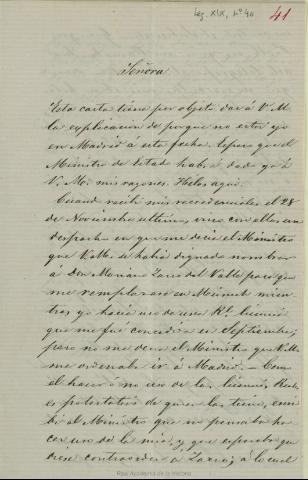 Leg. XIX, nº 40
41
Señora
Esta carta tiene por objeto dar á V. M.
la explicacion de porque no estoy yo
en Madrid á esta fecha. Espero que el
Ministro de Estado habrá dado ya á
V. M. mis razones. Hélas aquí.
Cuando recibí mis recredenciales el 28
de Noviembre último, vino con ellas un
despacho en que me decia el Ministro
que V. M. se habia dignado nombrar
á Don Mariano del Valle para que
me remplazara en Munich mien
tras yo hacia uso de una Rl. licencia
que me fue concedida en Septiembre;
pero no me decia el Ministro que V. M.
me ordenaba ir á Madrid. Como
el hacer ó no uso de las licencias Reales
es potestativo de quien las tiene, escri
bí al Ministro que no pensaba ha
cer uso de la mia, y que esperaba que
diese á la cual
Real Academia de la Historia